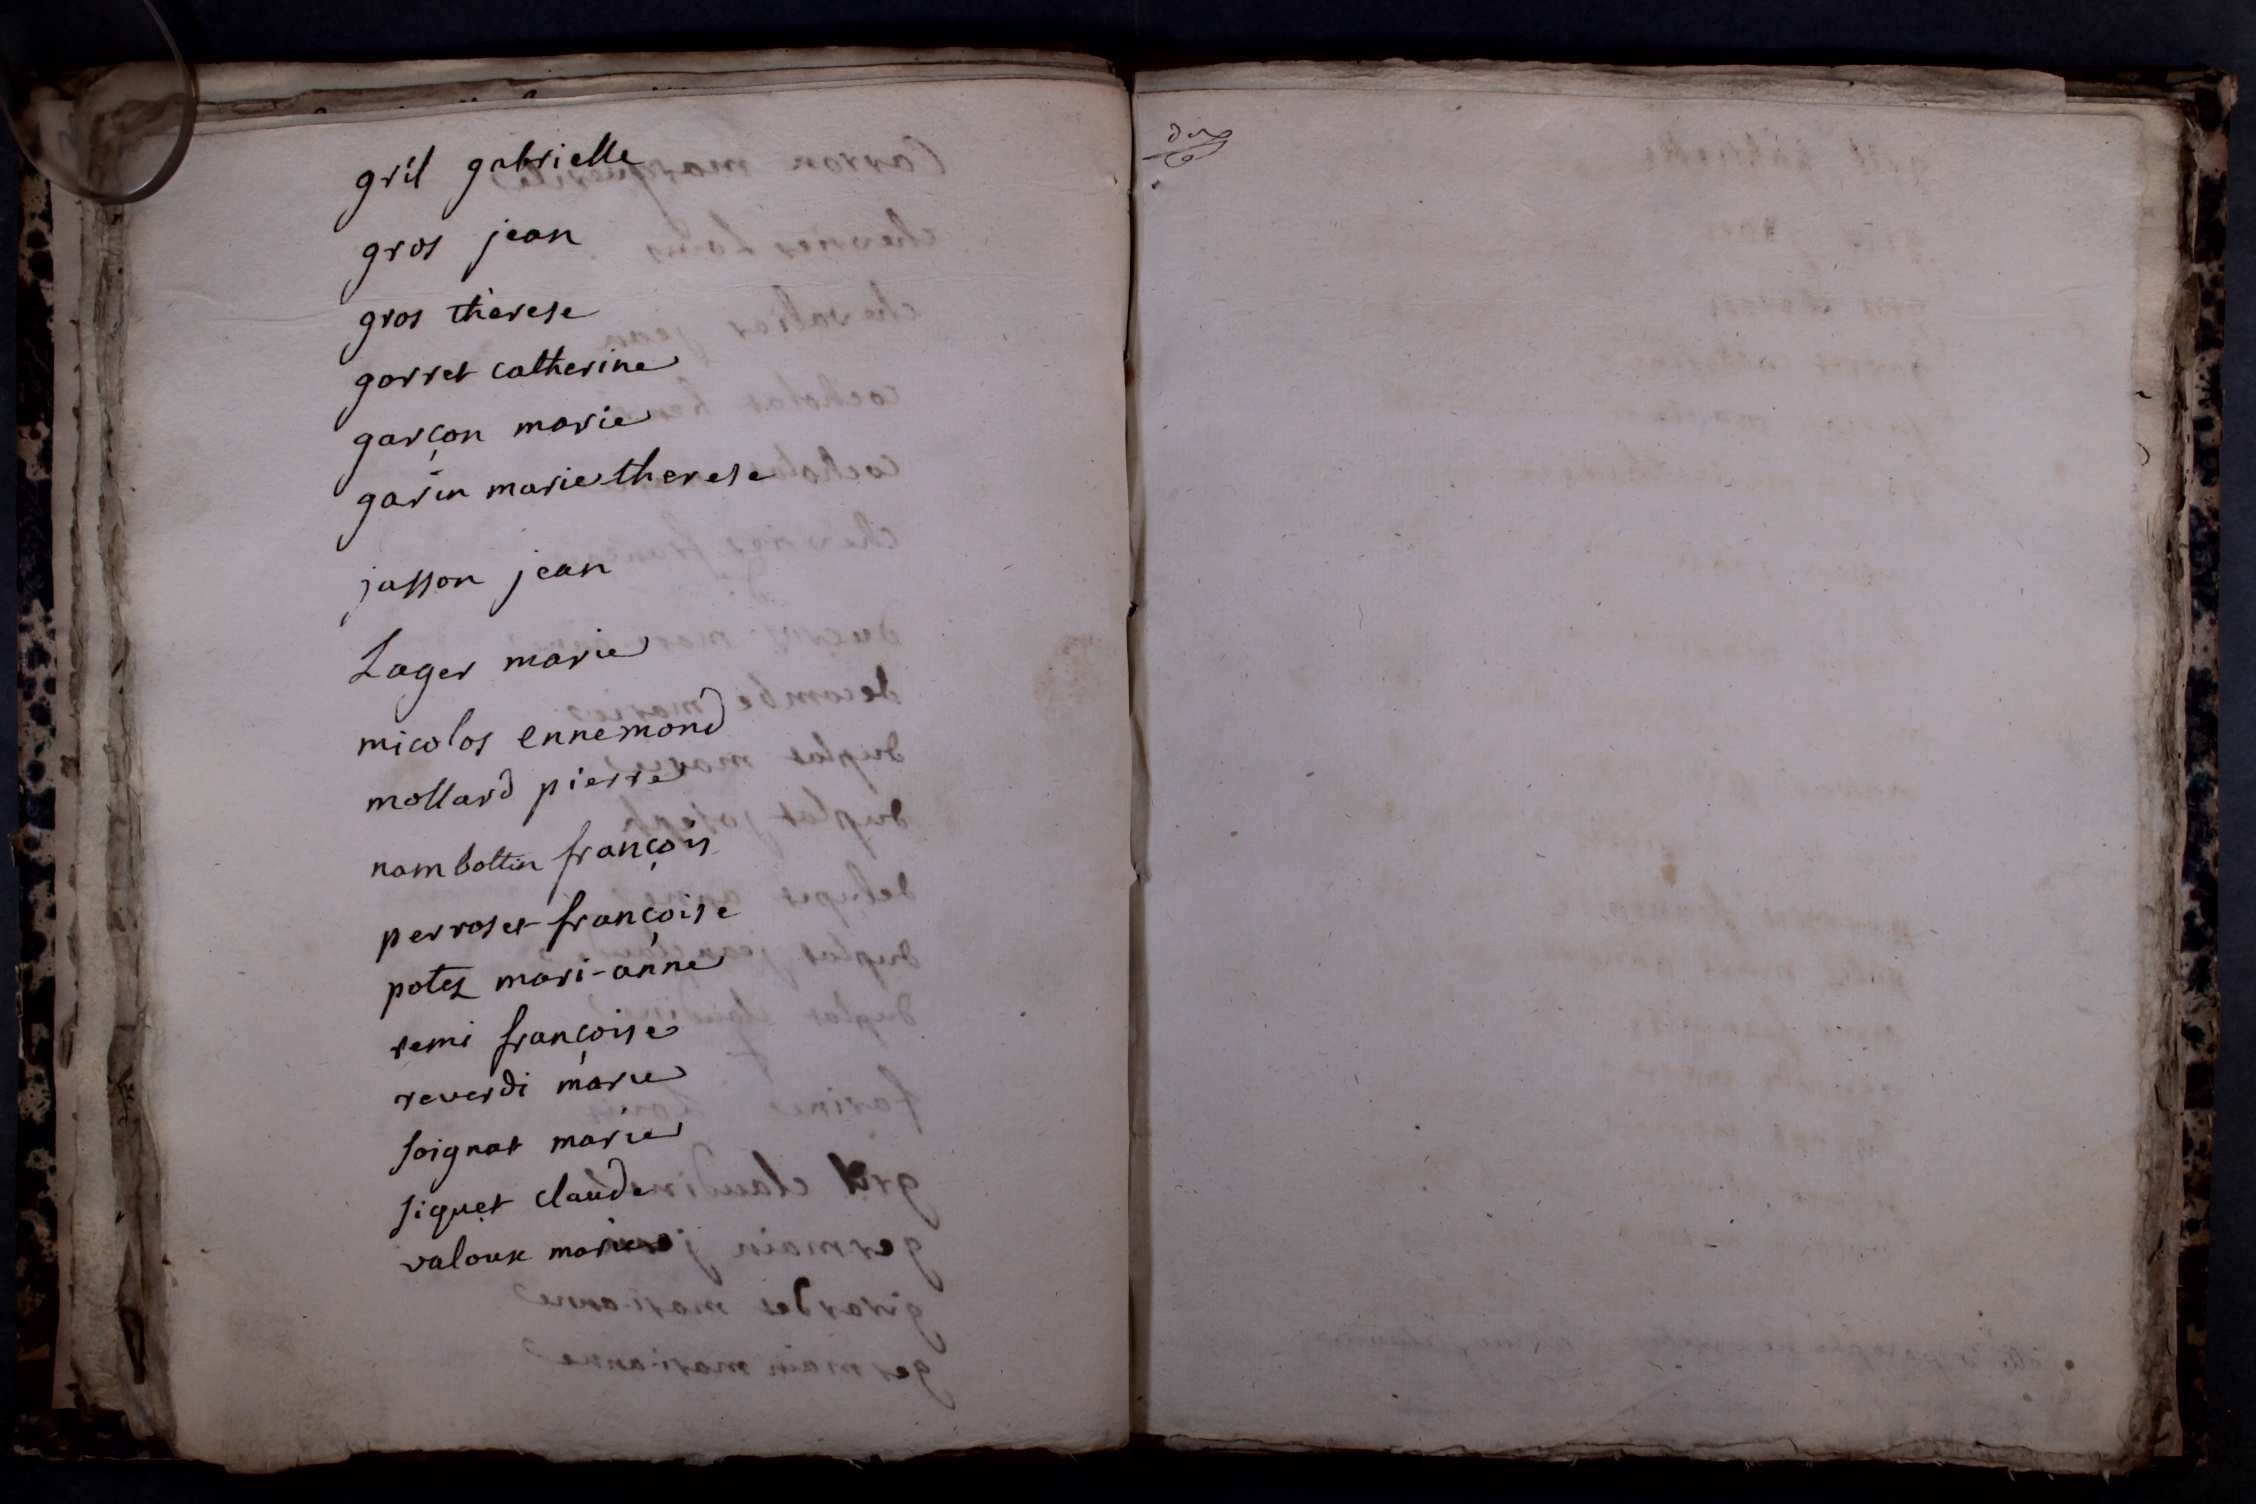 gril gabrielle
gros jean
gros thérese
gorret catherine
garçon marie
garin marie therese
jasson jean
Lager marie
micolos ennemond
mollard pierre
nambottin françois
perroset françoise
potez mari-anne
remi françoise
reverdi marie
soignat marie
siquet claude
valoux marie